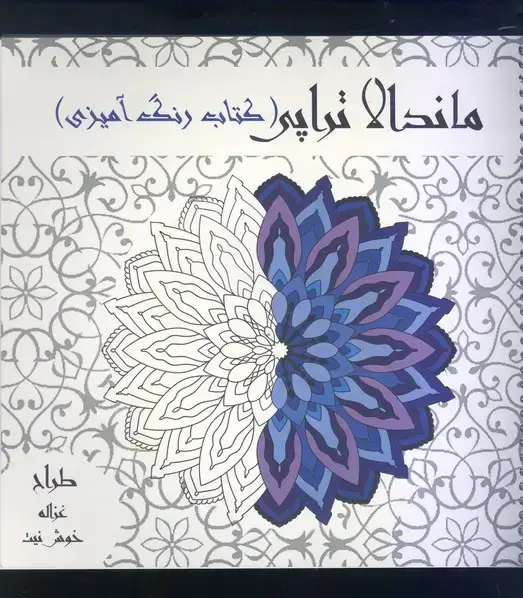 ماندالا تراپی (کتاب رنگ آمیزی)
طراح
غزاله
خوش نیت